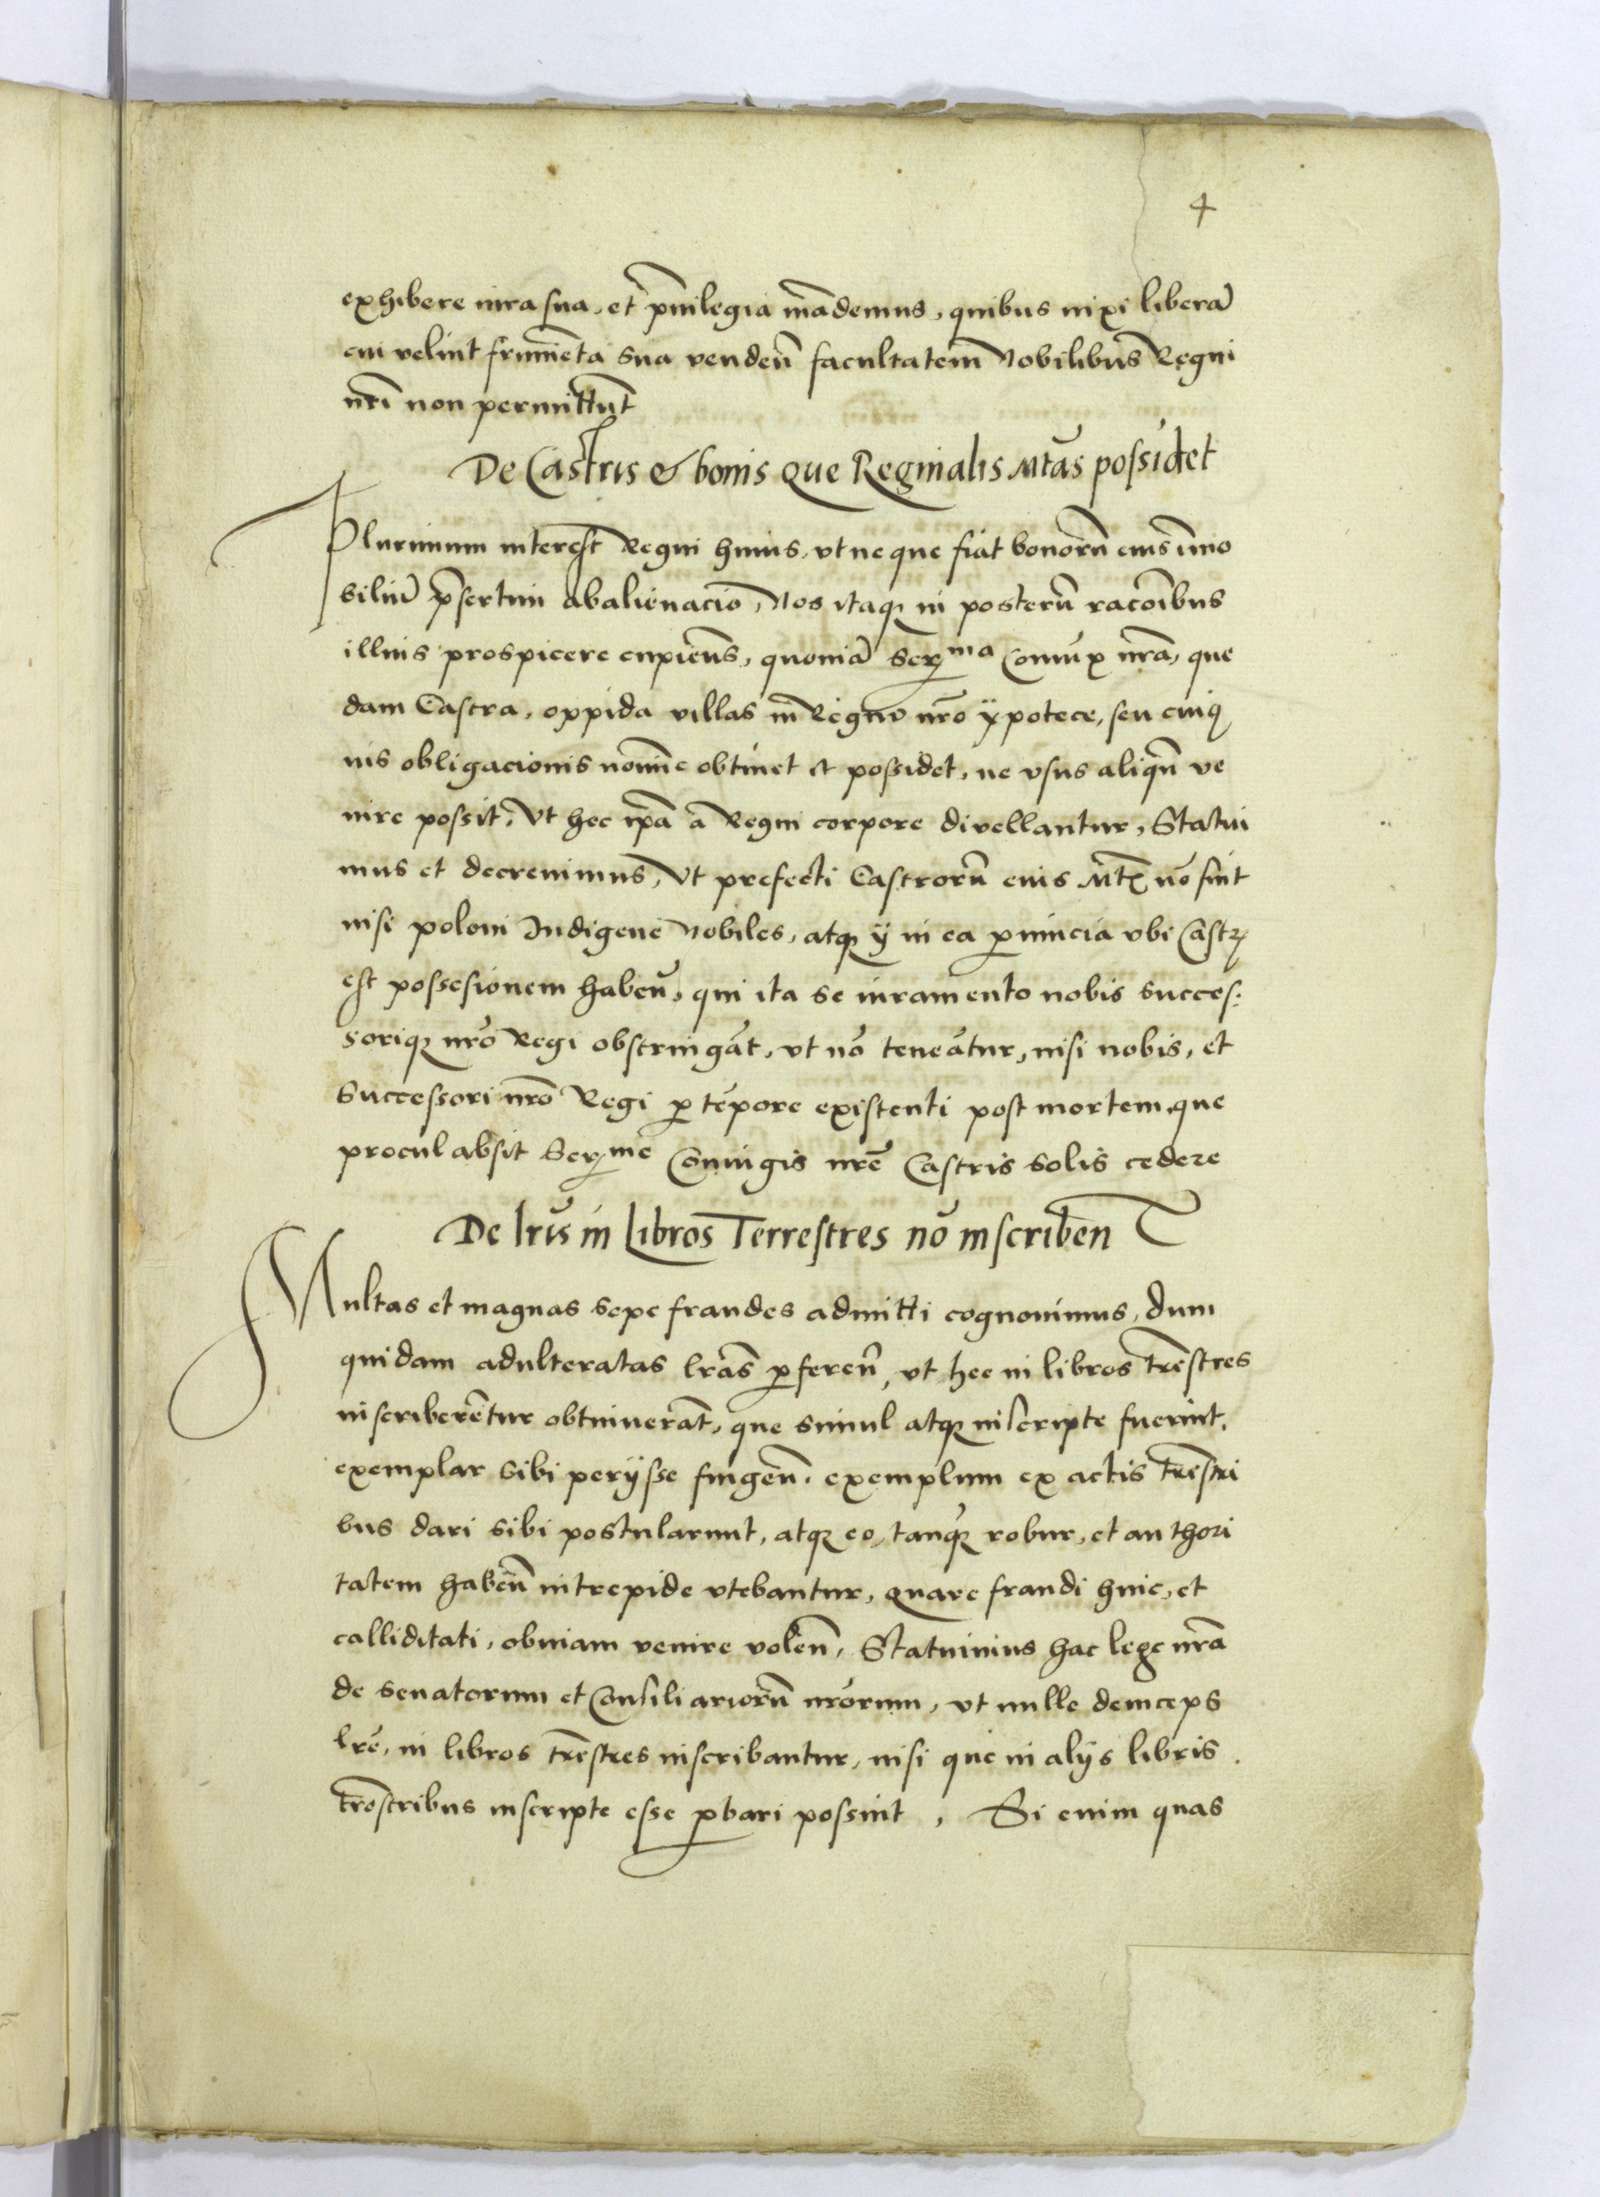 4
exhibere iura sua, et p̄uilegia mādemus, quibus nixi liberā
cui velint frumēta sua vendeñ facultatem Nobilibus Regni
nr̄i non permittūt
De Castris & bonis que Reginalis Mtās possidet
Plurimum interest Regni huius, vt ne que fiat bonorū eius īmo
biliū p̄sertim abalienacio, Nos itaqꝫ in posterū racōibus
illius prospicere cupiens, quoniā Serma Coniux nr̄a, que
dam Castra, oppida villas in Regno nr̄o ypotece, seu cuiuſ
uis obligacionis nomīe obtinet et possidet, ne vsus aliqn̄ ve
nire possit, Vt hec ip̄a a Regni corpore divellantur, Statui
mus et decreuimus, Vt prefecti Castrorū eius Mtꝭ nō sint
nisi poloni Indigene Nobiles, atqꝫ ij in ea ꝓuincia vbi Castꝝ
est possesionem habeñ, qui ita se iuramento nobis succes:
soriqꝫ nr̄o Regi obstringāt, vt nō teneātur, nisi nobis, et
Successori nr̄o Regi ꝓ tēpore existenti post mortem, que
procul absit Serme Coniugis nr̄e Castris solis cedere
De lr̄is in Libros Terrestres nō inscribeñ
Multas et magnas sepe fraudes admitti cognouimus, dum
quidam adulteratas lr̄as ꝓfereñ, vt hec in libros tr̄estres
inscriberētur obtinuerāt, que simul atqꝫ inscripte fuerint,
exemplar sibi perijsse fingeñ, exemplum ex actis tr̄estri
bus dari sibi postularunt, atqꝫ eo, tanqꝫ robur, et authori
tatem habeñ intrepide vtebantur, quare fraudi huic, et
calliditati, obuiam venire voleñ, Statuimus hac lege nr̄a
de senatorum et Consiliariorū nr̄orum, vt nulle deinceps
lr̄e, in libros tr̄estres inscribantur, nisi que in alijs libris
tr̄estribus inscripte esse ꝓbari possint, Si enim quas